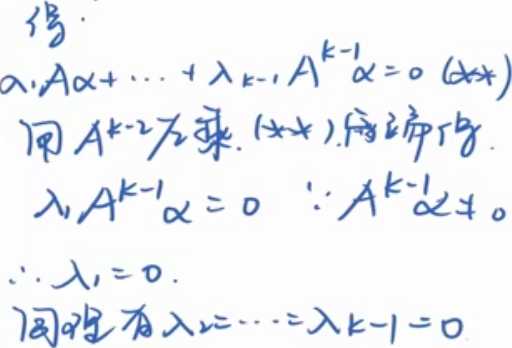 得.
λ₁Aα+⋯+λₖ₋₁Aᵏ⁻¹α=0 (**)
用 Aᵏ⁻²左乘.(**).两边得.
λ₁Aᵏ⁻¹α=0 ∵Aᵏ⁻¹α≠0
∴λ₁=0.
同理有λ₂=⋯=λₖ₋₁=0